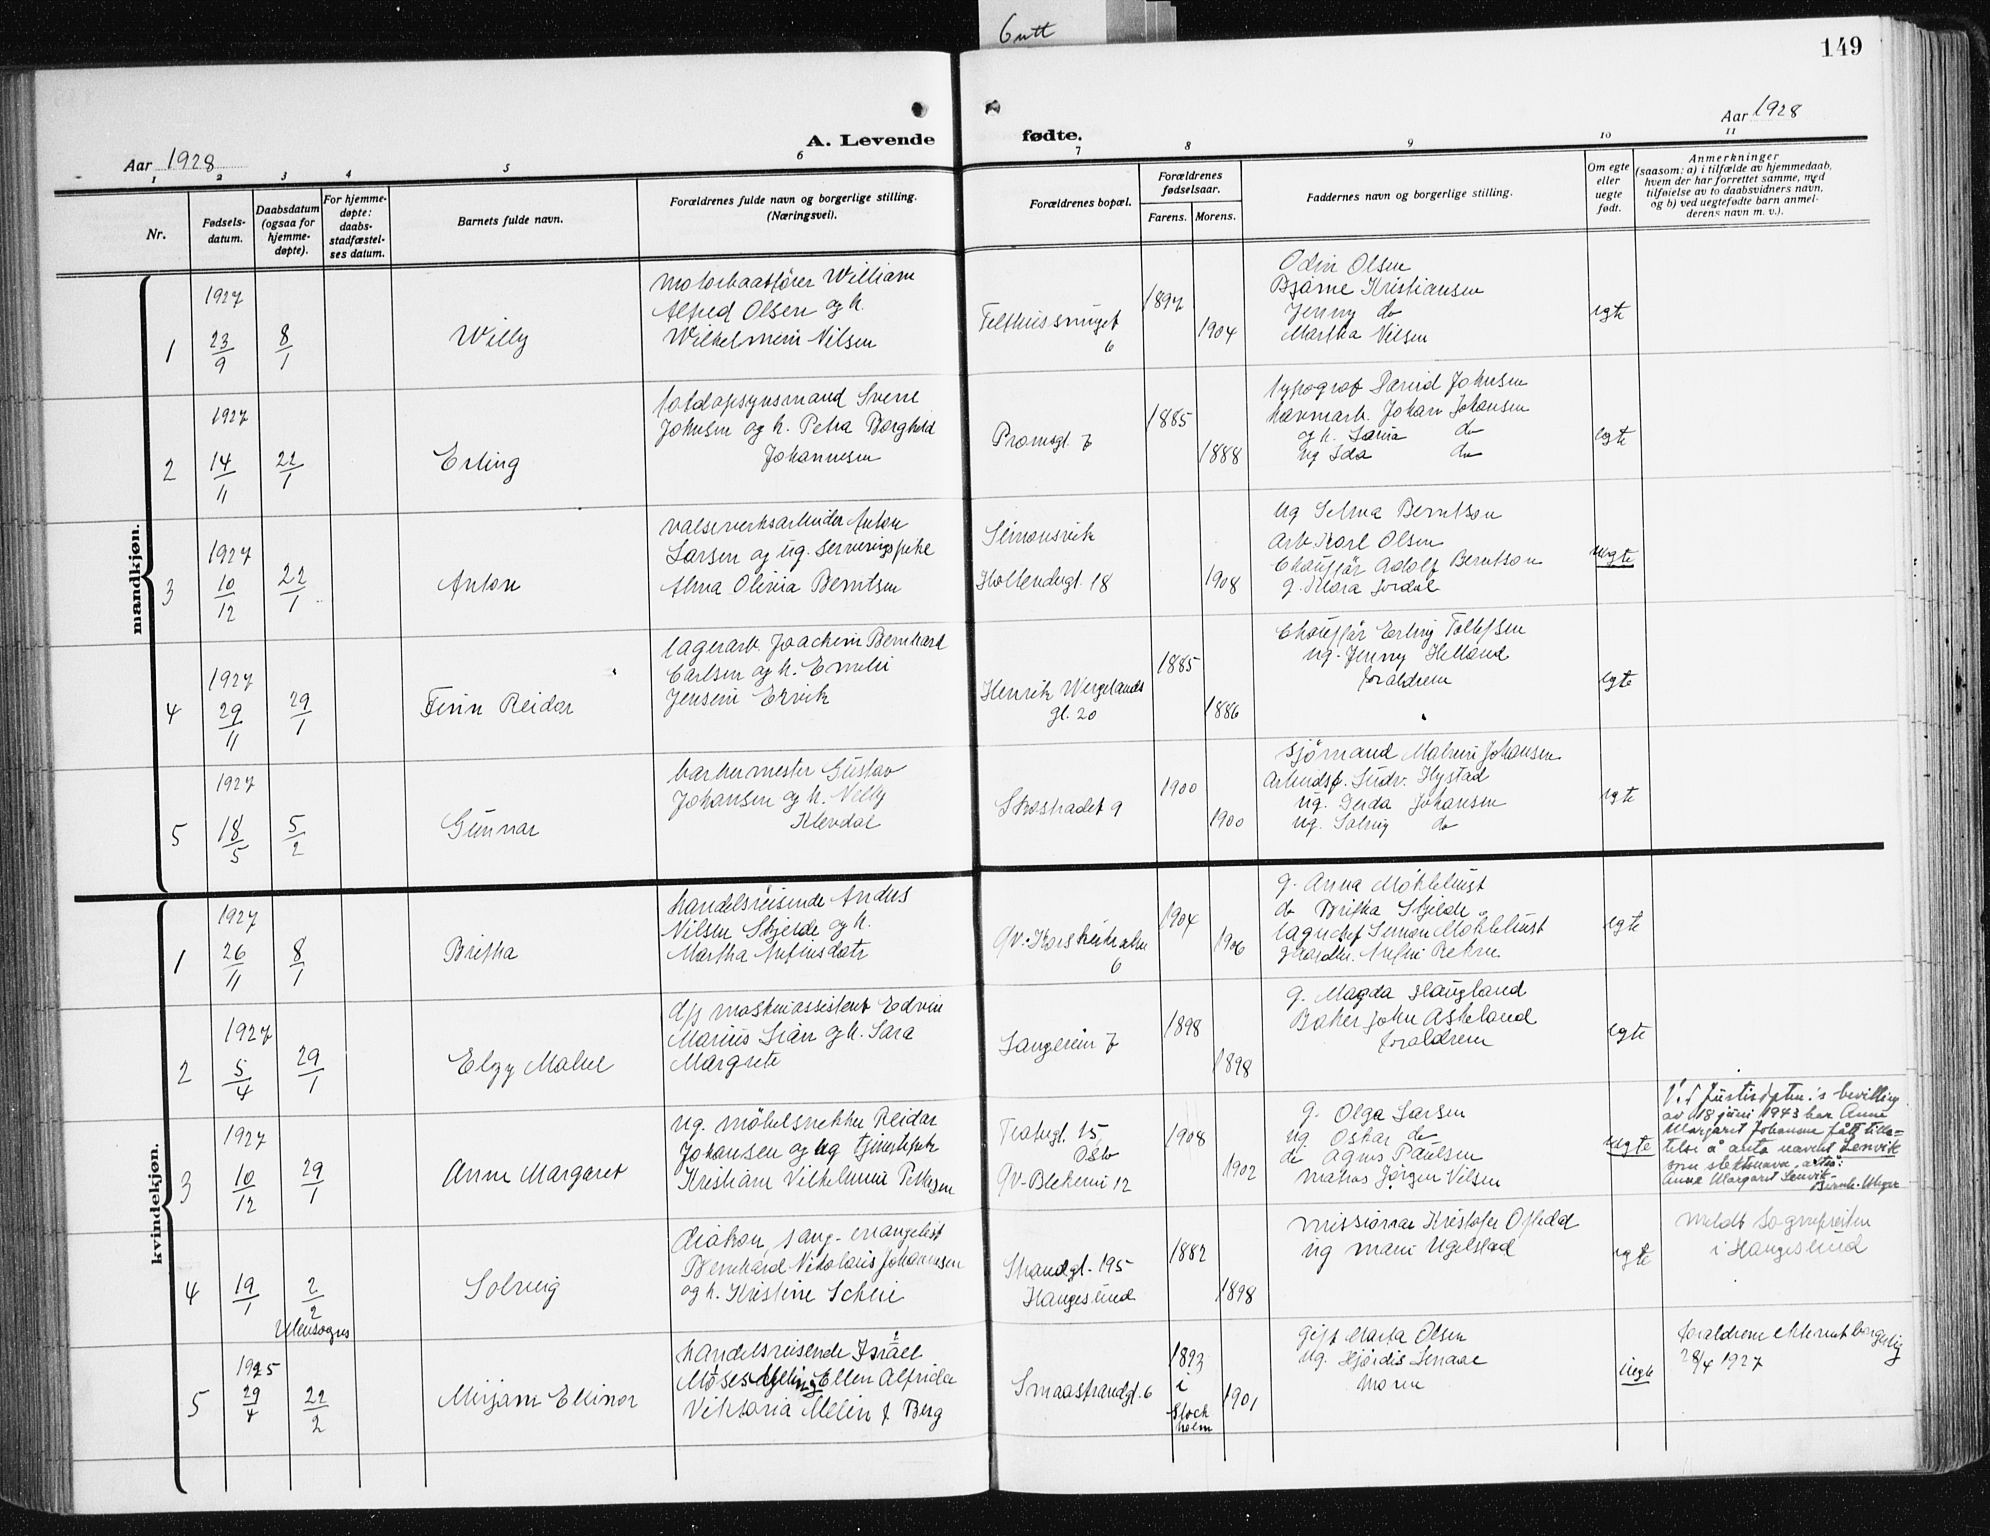 Gutt
149
Aar 1928
A. Levende
fødte.
Aar 1928
1 2 3 4 5 6 7 8 9 10 11
Nr.
Fødsels-
datum.
Daabsdatum
(ogsaa for
hjemme-
døpte).
For hjemme-
døpte:
daabs-
stadfæstel-
ses datum.
Barnets fulde navn.
Forældrenes fulde navn og borgerlige stilling.
(Næringsvei).
Forældrenes bopæl.
Forældrenes
fødselsaar.
Farens. Morens.
Faddernes navn og borgerlige stilling.
Om egte
eller
uegte
født.
Anmerkninger
(saasom: a) i tilfælde av hjemmedaab,
hvem der har forrettet samme, med
tilføielse av to daabsvidners navn,
og b) ved uegtefødte barn anmel-
derens navn m. v.).
mandkjøn.
1
1927
23/9
8/1
Willy
Motorbaatfører William
Alfred Olsen og h.
Wilhelmine Nilsen
6
1897
1904
Odin Olsen
Bjarne Kristiansen
Jenny do
Martha Nilsen
egte
2
1927
14/11
22/1
Erling
Johnsen og h. Petra Borghild
Johannesen
Promsgt. 7
1885
1888
typograf David Johnsen
havnearb. Johan Johansen
og h. do
ug Ida do
egte
3
1927
10/12
22/1
Anton
valseverksarbeider Anton
Larsen og ug. serveringspike
Alma Olivia Berntsen
Simonsvik
Hollendergt. 18
1908
ug Selma Berntsen
Arb. Karl Olsen
Chauffør Adolf Berntson
g. Klara Jordal
uegte
4
1927
29/11
29/1
Finn Reidar
lagerarb. Joachim Bernhard
Carlsen og h. Emilie
Jensine Ervik
Henrik Wergelands
gt. 20
1885
1886
Chauffør Erling Tollefsen
ug. Jenny Helland
forældrene
egte
5
1927
18/5
5/2
Gunnar
barbermester Gustav
Johansen og h. Nelly
Klevdal
Skostradet 9
1900
1900
sjømand Johansen
Hystad
ug. Gerda Johansen
ug. Solveig do
egte
kvindekjøn.
1
1927
26/11
8/1
Britha
handelsreisende Anders
Nilsen Skjelde og h.
Martha Arfinsdatr
6
1904
1906
g. Anna Møklebust
do Britha Skjelde
lagerchef Simon Møklebust
egte
2
1927
5/4
29/1
Elzy Mabel
d/s maskinassistent Edvin
Marius og h. Sara
Margrete
Langeveien 7
1898
1898
g. Magda Haugland
Baker John Askeland
forældrene
egte
3
1927
10/12
29/1
Anne Margaret
ug. møbelsnekker Reidar
Johansen og ug tjenestepike
Kristiane Vilhelmine Pettersen
15
Oslo
Øv. Blekevei 12
1908
1902
g. Olga Larsen
ug. Oskar do
do Agnes Paulsen
matros Jørgen Nilsen
uegte
Ved Justisdptm.'s bevilling
av 18 juni 1943 har Anne
Margaret Johansen fått tilla-
telse å anta navnet Lenvik
som slektsnavn, altså:
Anne Margaret Lenvik.
4
19/1
2/2
Utensogns
Solveig
diakon, sang-evangelist
Bernhard Nikolaus Johannesen
og h. Kristine Scheie
Strandgt. 195
Haugesund
1882
1898
missionær Kristofer Oftedal
ug Marie Ugelstad
egte
meldt Sognepresten
i Haugesund
5
1925
29/4
22/2
Mirjam Ellinor
handelsreisende Israel
Moses Melin og Ellen Alfrida
Viktoria Melin f. Berg
Smaastrandgt. 6
1893
i
Stock
holm
1901
gift Marta Olsen
ug. Hjørdis
Moren
uegte
forældrene ekteviet borgerlig
28/4 1927